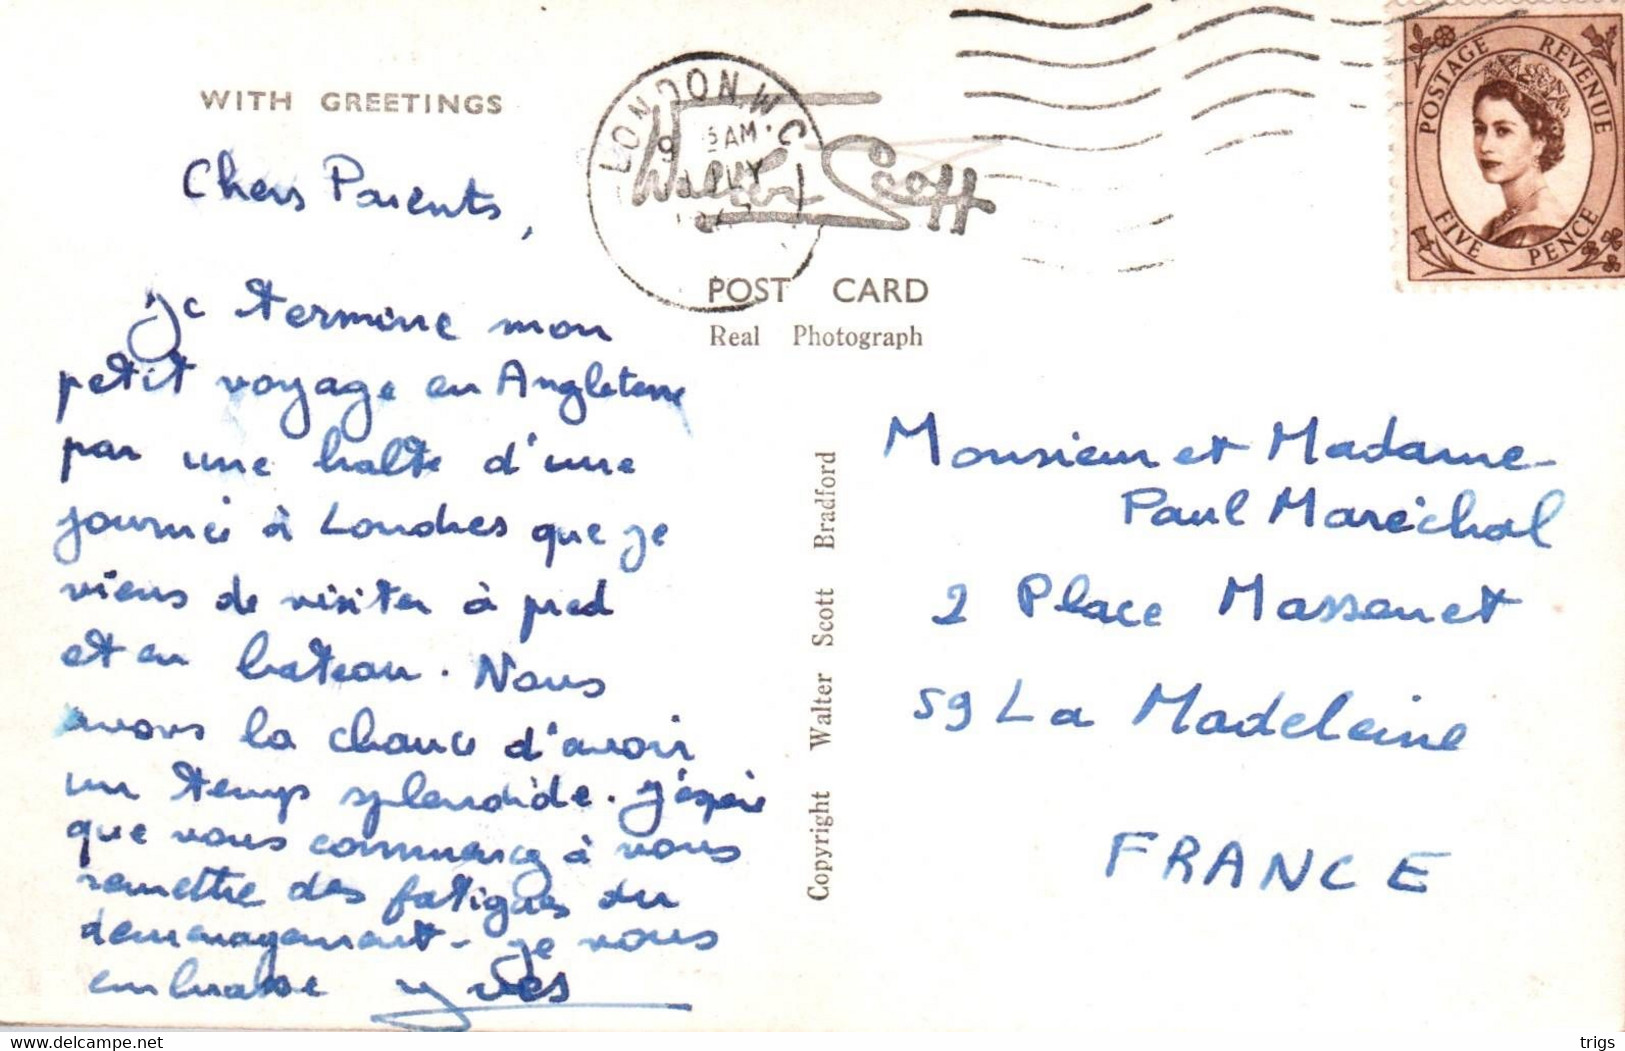 WITH GREETINGS
LONDON. W.C.
9 AM.
Walter Scott
POSTAGE REVENUE
FIVE PENCE
POST CARD
Real Photograph
Chers Parents,
je termine mon
petit voyage en Angleterre
par une halte d'une
journée à Londres que je
viens de visiter à pied
et en bateau. Nous
avons la chance d'avoir
un temps splendide. J'espère
que vous commencez à vous
remettre des fatigues du
demenagement - je vous
embrasse yves
Copyright Walter Scott Bradford
Monsieur et Madame
Paul Maréchal
2 Place Massenet
59 La Madeleine
FRANCE
delcampe.net
trigs